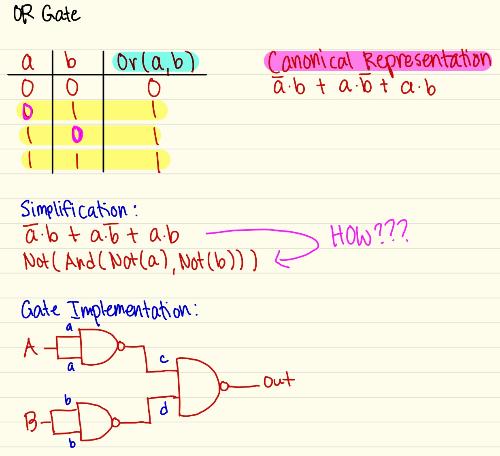 OR Gate
a b Or(a,b)
0 0 0
0 1 1
1 0 1
1 1 1
Canonical Representation
a̅·b + a·b̅ + a·b
Simplification:
a̅·b + a·b̅ + a·b
HOW???
Not(And(Not(a), Not(b)))
Gate Implementation:
a
A
a
c
out
b
d
B
b